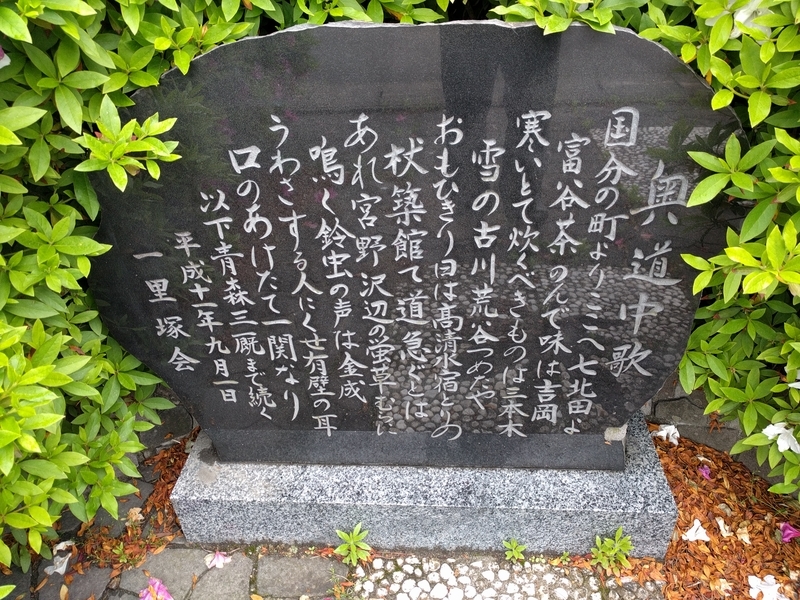 奥道中歌
国分の町よりここへ七北田よ
富谷茶のんで味は吉岡
寒いとて炊くべきものは三本木
雪の古川荒谷つめたや
おもひきり日は高清水宿とりの
杖築館て道急ぐとは
あれ宮野沢辺の蛍草むらに
鳴く鈴虫の声は金成
うわさする人にくせ有壁の耳
口のあけたて一関なり
以下青森三厩まで続く
平成十一年九月一日
一里塚会